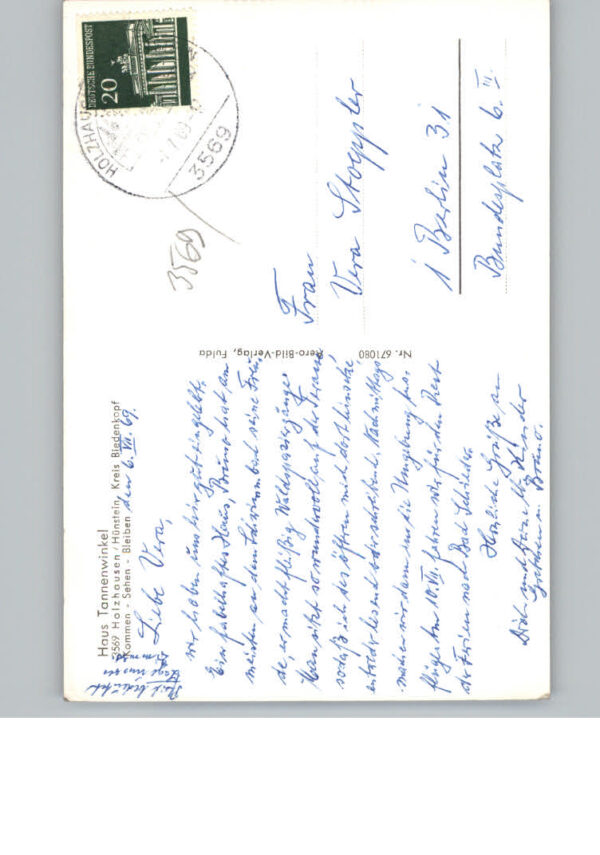 Haus Tannenwinkel
3569 Holzhausen/Hünstein, Kreis Biedenkopf
Kommen - Sehen - Bleiben
den 6. VII. 69.
Liebe Vera,
wir haben uns hier gut eingelebt.
Ein fabelhaftes Haus, Bruno hat am
meisten an dem Schwimmbad seine Freu-
de, er macht fleißig Waldspaziergänge
Man sitzt so wundervoll auf der Terasse
sodaß ich des öfteren mich dort hinsetze
entweder lesend oder schreibend. Nachmittags
machen wir dann in die Umgebung Aus-
flüge. Am 10. VII fahren wir für den Rest
der Ferien nach Bad
Herzliche Grüße an
Dich und Deine Kinder
u. Bruno.
Nr. 671080
Aero-Bild-Verlag, Fulda
Frau
Vera Stoeppler
1 Berlin 31
Bundesplatz 6. II
3569
DEUTSCHE BUNDESPOST
20
HOLZHAUSEN
3569